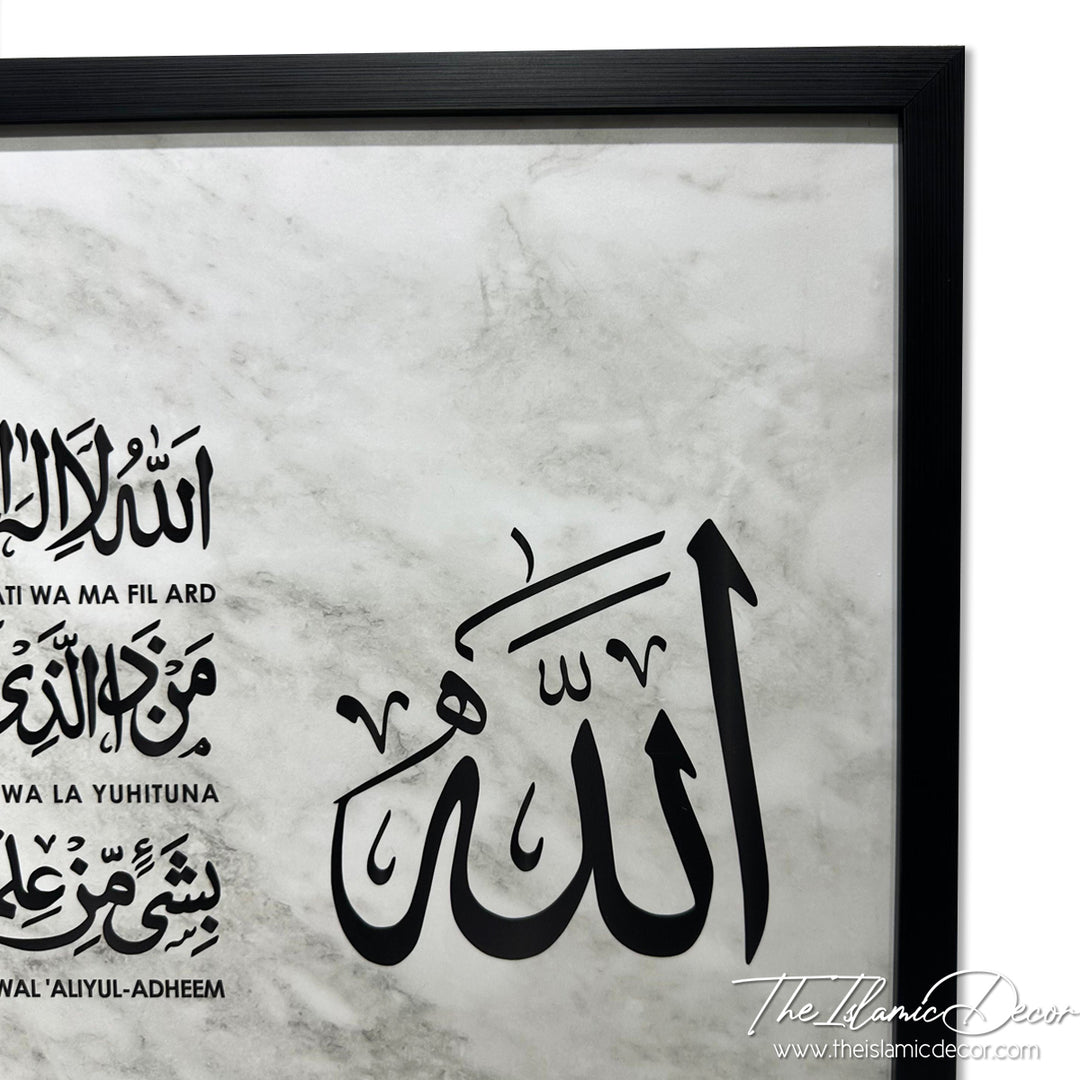 اَللّٰهُ لَا اِلٰهَ
ATI WA MA FIL ARD
مَنْ ذَا الَّذِى
WA LA YUHITUNA
بِشَىْءٍ مِّنْ
WAL 'ALIYUL-ADHEEM
اللّٰه
The Islamic Decor
www.theislamicdecor.com